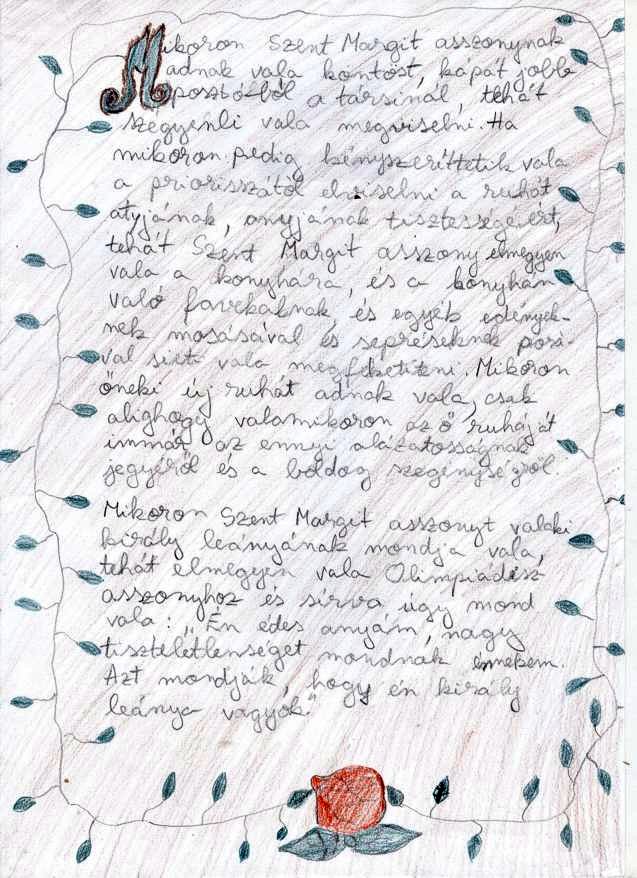 Mikoron Szent Margit asszonynak
adnak vala köntöst, kápát jobb
posztóból a társinál, tehát
szegyenli vala megviselni. Ha
mikoron pedig kényszeríttetik vala
a priorisszától elviselni a ruhát
atyjának, anyjának tisztességeért,
tehát Szent Margit asszony elmegyen
vala a konyhára, és a konyhán
való favékaknak és egyéb edények-
nek mosásával és sepréseknek porá-
val siet vala megfeketitni. Mikoron
őneki új ruhát adnak vala, csak
alighogy valamikoron az ő ruháját
immár az ennyi alázatosságnak
jegyéről és a boldog szegénységről
Mikoron Szent Margit asszonyt valaki
király leányának mondja vala,
tehát elmegyen vala Olimpiádisz
asszonyhoz és sírva úgy mond
vala: „Én édes anyám, nagy
tiszteletlenséget mondnak énnekem.
Azt mondják, hogy én király
leánya vagyok."